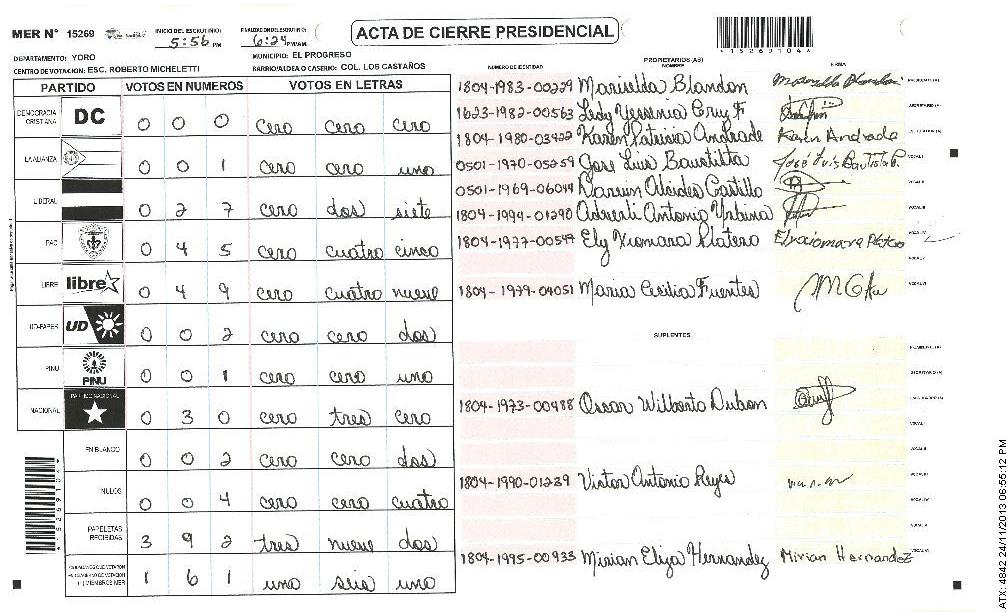 MER N° 15269 INICIO DEL ESCRUTINIO: 5:56 PM FINALIZACION DEL ESCRUTINIO: 6:24 PM/AM
ACTA DE CIERRE PRESIDENCIAL
DEPARTAMENTO: YORO MUNICIPIO: EL PROGRESO
CENTRO DE VOTACION: ESC. ROBERTO MICHELETTI BARRIO/ALDEA O CASERIO: COL. LOS CASTAÑOS
PARTIDO VOTOS EN NUMEROS VOTOS EN LETRAS
DEMOCRACIA CRISTIANA DC 0 0 0 cero cero cero
LA ALIANZA 0 0 1 cero cero uno
LIBERAL 0 2 7 cero dos siete
PAC 0 4 5 cero cuatro cinco
LIBRE libre 0 4 9 cero cuatro nueve
UD-FAPER UD 0 0 2 cero cero dos
PINU PINU 0 0 1 cero cero uno
NACIONAL PARTIDO NACIONAL 0 3 0 cero tres cero
EN BLANCO 0 0 2 cero cero dos
NULOS 0 0 4 cero cero cuatro
PAPELETAS RECIBIDAS 3 9 2 tres nueve dos
1 6 1 uno seis uno
PROPIETARIOS (AS)
NUMERO DE IDENTIDAD NOMBRE FIRMA
1804-1983-00229 Marielda Blandon
1623-1982-00563 Ledy Yessenia Cruz F
1804-1980-03422 Karen Patricia Andrade Karen Andrade
0501-1970-05259 Jose Luis Baustitta José Luis Bautista B.
0501-1969-06044 Alcides Castillo
1804-1994-01290 Antonio Urbina
1804-1977-00547 Ely Xiomara Platero
1804-1979-04051 Maria Cecilia Fuentes
SUPLENTES
1804-1973-00488 Oscar Wilberto Dubon
1804-1990-01239 Victor Antonio Reyes
1804-1995-00933 Mirian Eliza Hernandez Mirian Hernandez
ATX: 4842 24/11/2013 06:55:12 PM